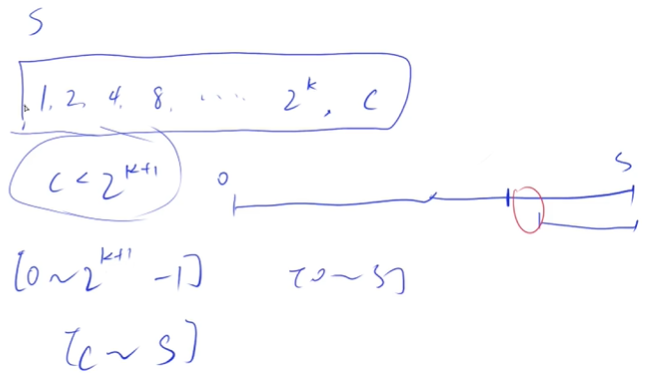 S
1, 2, 4, 8, ...... 2^k, C
C < 2^{k+1}
0 S
[0 ~ 2^{k+1} - 1] [0 ~ S]
[C ~ S]